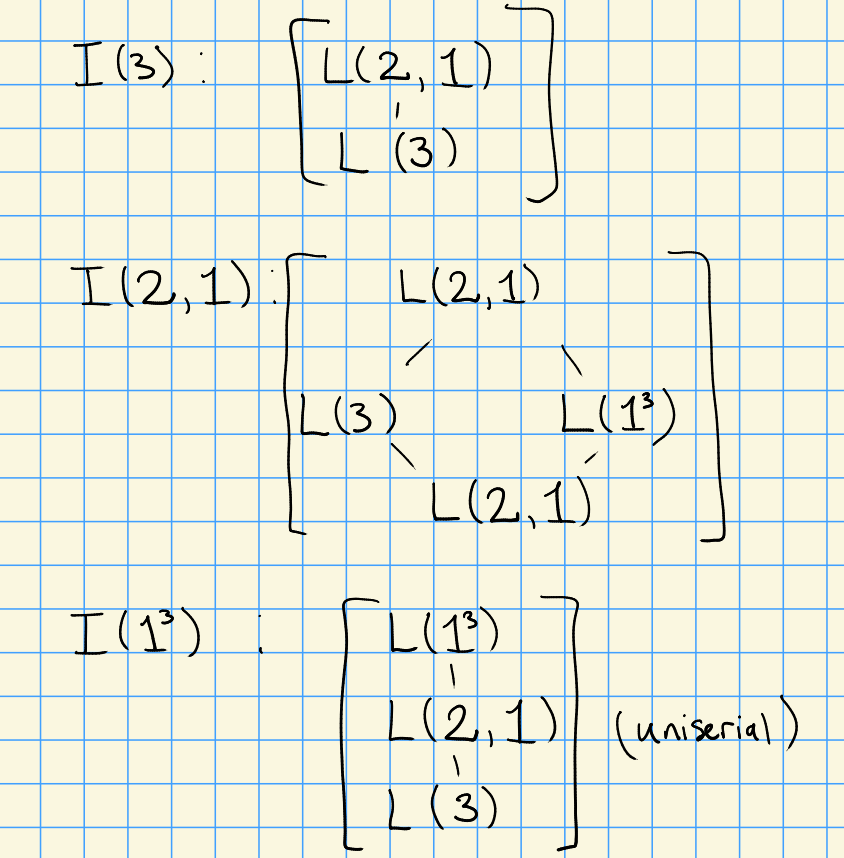 I(3): [L(2,1)
L(3)]
I(2,1): [L(2,1)
L(3) L(1³)
L(2,1)]
I(1³) : [L(1³)
L(2,1) (uniserial)
L(3)]